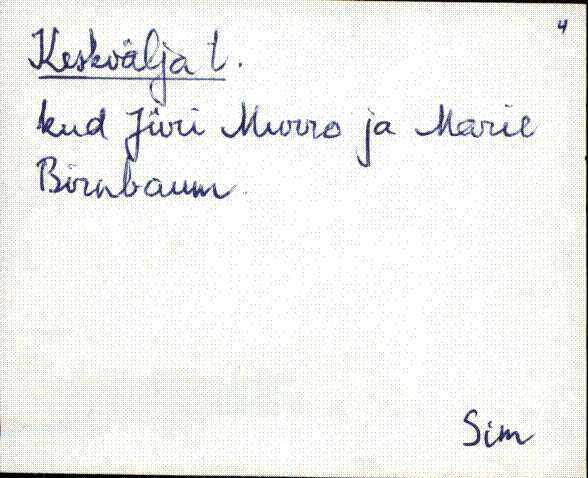 4
Keskvälja t.
kud Jüri Murro ja Marie
Birnbaum
Sim